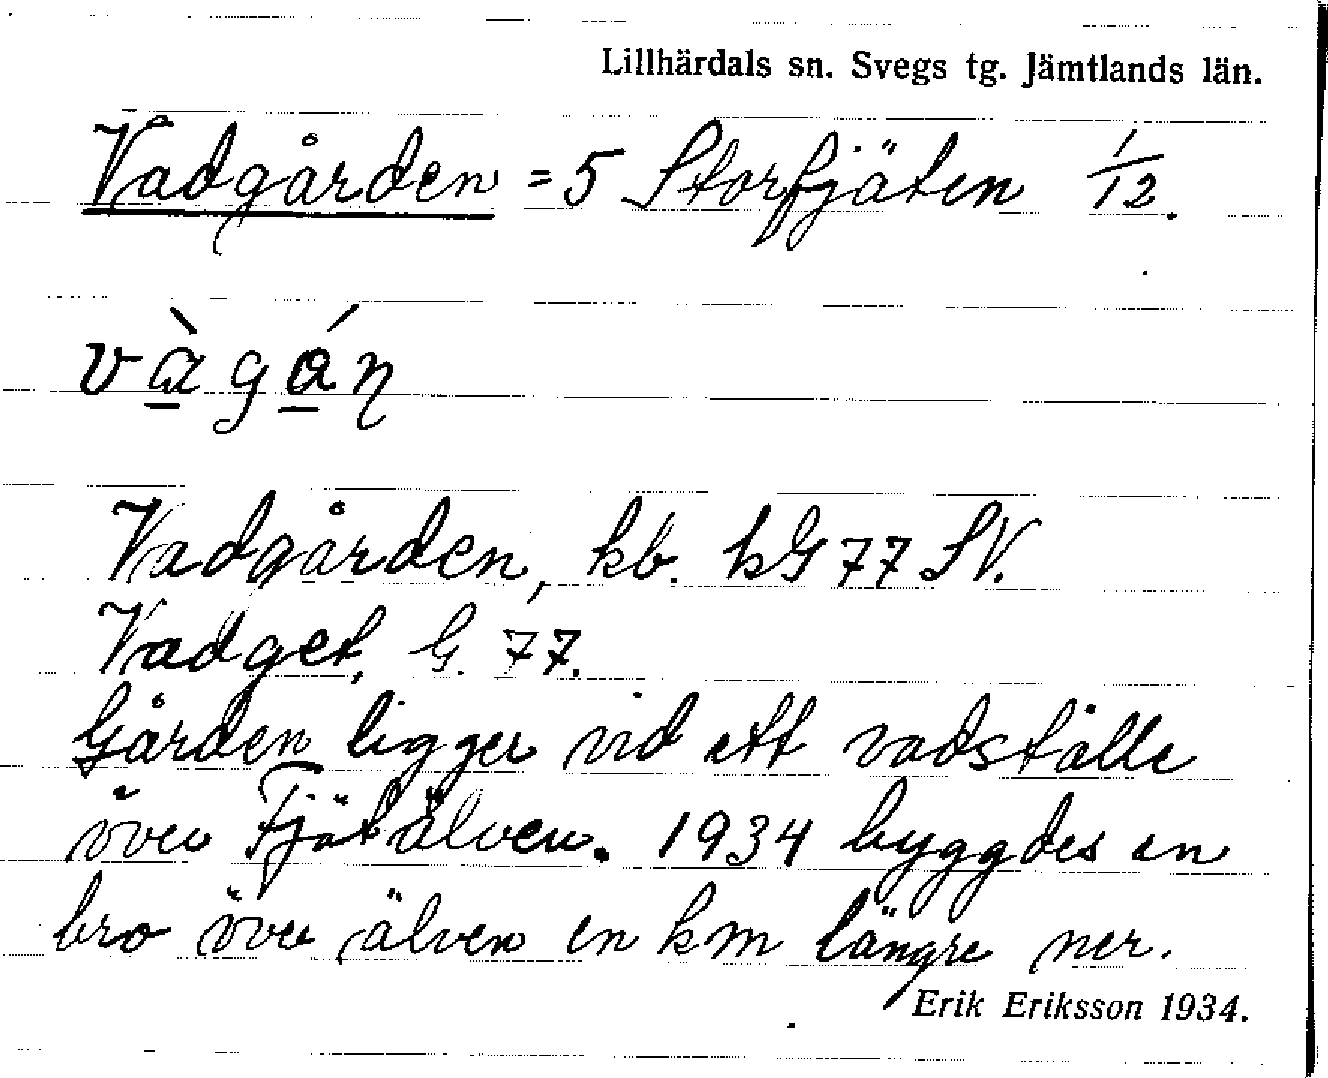 Lillhärdals sn. Svegs tg. Jämtlands län.
Vadgården = 5 Storfjäten 1/12.
Vadgården, kb. hG 77 SV.
Vadget, G. 77.
Gården ligger vid ett vadställe
över Fjätälven. 1934 byggdes en
bro över älven en km längre ner.
Erik Eriksson 1934.